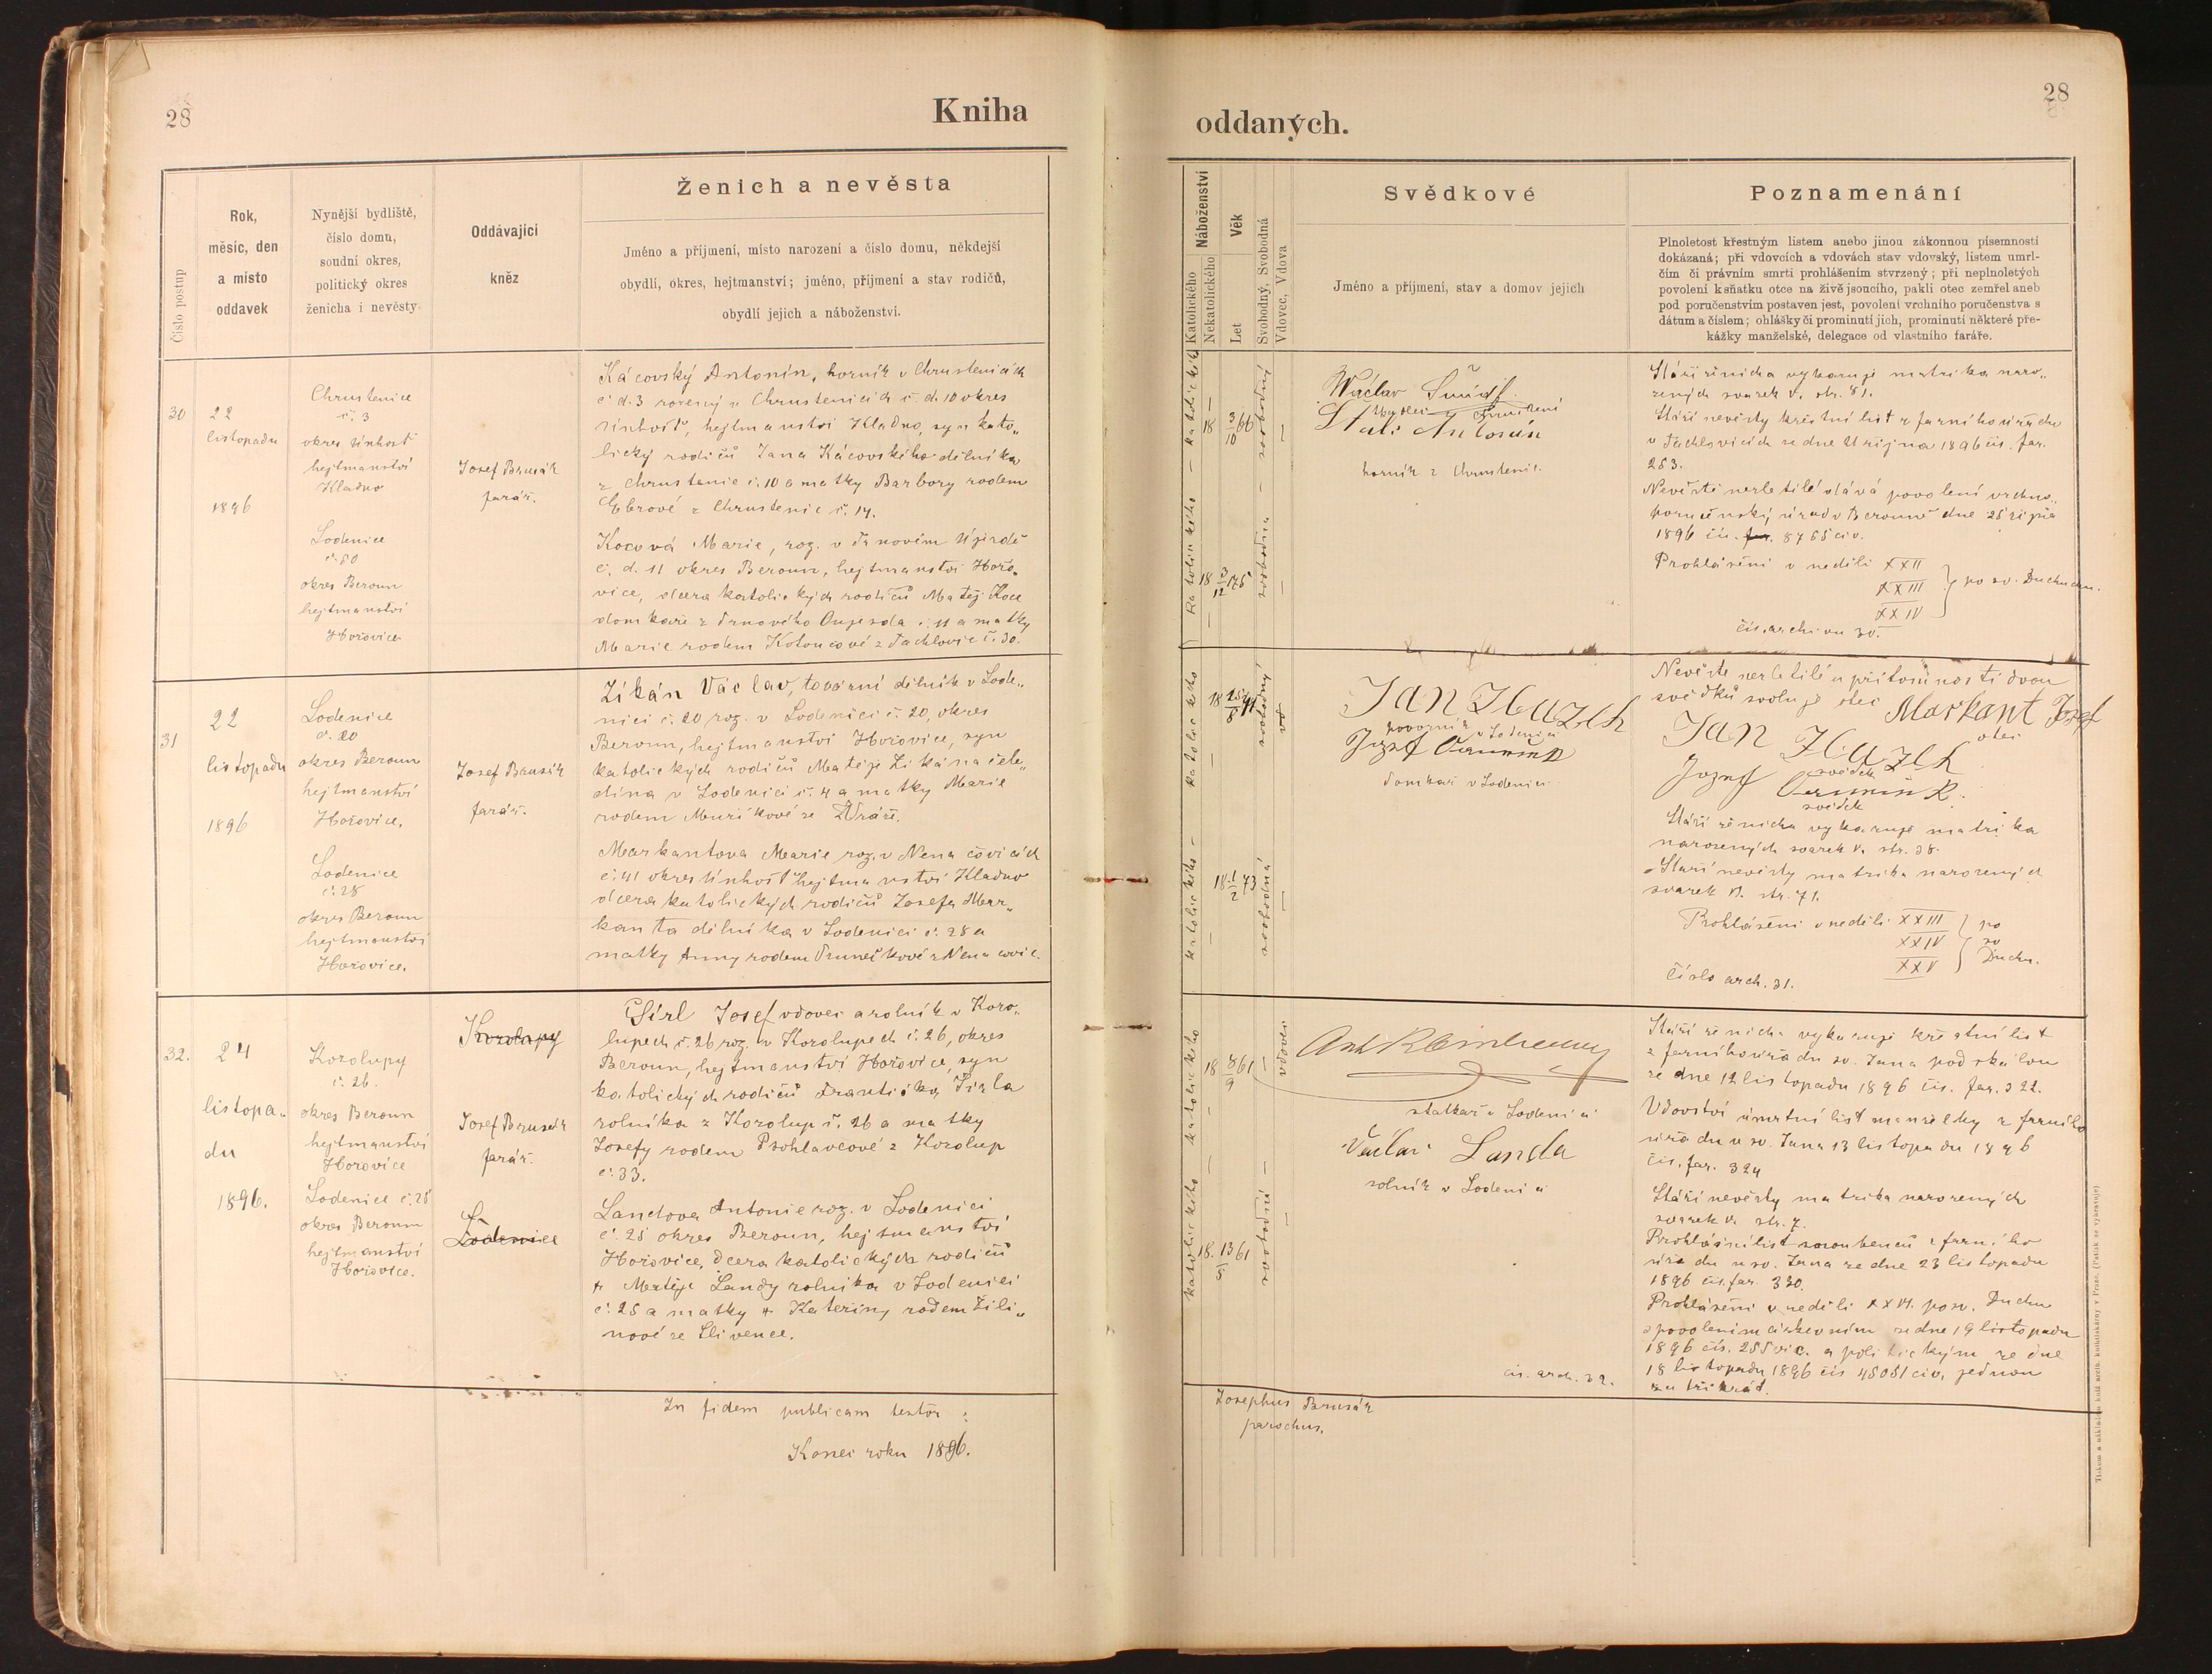 28
Kniha
Číslo postup
Rok,
měsíc, den
a místo
oddavek
Nynější bydliště,
číslo domu,
soudní okres,
politický okres
ženicha i nevěsty
Oddávající
kněz
Ženich a nevěsta
Jméno a příjmení, místo narození a číslo domu, někdejší
obydlí, okres, hejtmanství; jméno, příjmení a stav rodičů,
obydlí jejich a náboženství.
30
22
listopadu
1896
Chrustenice
č. 3
okres Unhošť
hejtmanství
Kladno
Lodenice
č. 50
okres Beroun
hejtmanství
Hořovice
Josef Brusák
farář.
Kácovský Antonín, horník v Chrustenicích
č. d. 3 rozený v Chrustenicích č. d. 10 okres
Unhošť, hejtmanství Kladno, syn kato„
lický rodičů Jana Kácovského dělníka
z Chrustenic č. 10 a matky Barbory rodem
z Chrustenic č. 14.
Kocová Marie, roz. v Trnovém Újezdě
č. d. 11 okres Beroun, hejtmanství Hořo„
vice, dcera katolických rodičů Matěj Koce
domkaře z Trnového Oujezda č. 11 a matky
Marie rodem Kotoučové z Tachlovic č. 30.
31
22
listopadu
1896
Lodenice
č. 20
okres Beroun
hejtmanství
Hořovice.
Lodenice
č. 28
okres Beroun
hejtmanství
Hořovice.
Josef Brusák
farář.
Zikán Václav, tovární dělník v Lode„
nici č. 20 roz. v Lodenici č. 20, okres
Beroun, hejtmanství Hořovice, syn
katolických rodičů Matěje Zikána čele„
dína v Lodenici č. 4 a matky Marie
rodem Muříkové ze Vráže.
Markantova Marie roz. v Nenačovicích
č. 41 okres Unhošť hejtmanství Kladno
dcera katolických rodičů Josefa Mar„
kanta dělníka v Lodenici č. 28 a
matky Anny rodem Trunečkové z Nenačovic.
32.
24
listopa„
du
1896.
Korolupy
č. 26.
okres Beroun
hejtmanství
Hořovice
Lodenice č. 25
okres Beroun
hejtmanství
Hořovice.
Korolupy
Josef Brusák
farář.
Lodenice
Girl Josef vdovec a rolník v Koro„
lupech č. 26 roz. v Korolupech č. 26, okres
Beroun, hejtmanství Hořovice, syn
katolických rodičů Františka Girla
rolníka z Korolup č. 26 a matky
Josefy rodem Psohlavcové z Korolup
č. 33.
Landova Antonie roz. v Lodenici
č. 25 okres Beroun, hejtmanství
Hořovice, dcera katolických rodičů
† Matěje Landy rolníka v Lodenici
č. 25 a matky † Kateřiny rodem Žili„
nové ze Slivence.
In fidem publicam testor:
Konec roku 1896.
28
oddaných.
Náboženství
Katolického
Nekatolického
Věk
Let
Svobodný, Svobodná
Vdovec, Vdova
Svědkové
Jméno a příjmení, stav a domov jejich
Poznamenání
Plnoletost křestným listem anebo jinou zákonnou písemností
dokázaná; při vdovcích a vdovách stav vdovský, listem umrl-
čím či právním smrti prohlášením stvrzený; při neplnoletých
povolení k sňatku otce na živě jsoucího, pakli otec zemřel aneb
pod poručenstvím postaven jest, povolení vrchního poručenstva s
dátum a číslem; ohlášky či prominutí jich, prominutí některé pře-
kážky manželské, delegace od vlastního faráře.
katolického
18 3/10 66
svobodný
katolického
18 3/12 75
svobodna
Waclav Šmidt
Antonín
horník z Chrustenic.
Stáří ženicha vykazuje matrika naro„
zených svazek V. str. 81.
Stáří nevěsty křestní list z farního úřadu
v Tachlovicích ze dne 21 října 1896 čís. far.
253.
Nevěstě nezletilé dává povolení vrchno„
poručenský úřad v Berouně dne 25 října
1896 čís. far. 8765 civ.
Prohlášeni v neděli XXII
XXIII
XXIV
po sv. Duchu.
čís. archivu 30.
katolického
18 25/8 71
svobodný
katolického
18 1/2 73
svobodná
JAN
v Lodenici
Jozef
domkař v Lodenici
Nevěstě nezletilé u přítomnosti dvou
svědků svoluje otec Markant Josef
otec
JAN
svědek
Jozef
svědek
Stáří ženicha vykazuje matrika
narozených svazek V. str. 38.
Stáří nevěsty matrika narozených
svazek V. str. 71.
Prohlášeni v neděli XXIII
XXIV
XXV
po
sv
Duchu.
Číslo arch. 31.
katolického
18 8/9 61
vdovec
katolického
18 13/5 61
svobodná
statkář v Lodenici
Václav Landa
rolník v Lodenici
čís. arch. 32.
Stáří ženicha vykazuje křestní list
z farního úřadu sv. Jana pod skálou
ze dne 12 listopadu 1896 čís. far. 322.
Vdovství úmrtní list manželky z farního
úřadu u sv. Jana 13 listopadu 1896
čís. far. 324
Stáří nevěsty matrika narozených
svazek V. str. 7.
Prohlášní list snoubenců z farního
úřadu u sv. Jana ze dne 23 listopadu
1896 čís. far. 330.
Prohlášeni v neděli XXVI. po sv. Duchu
s povolením církevním ze dne 19 listopadu
1896 čís. 255 vic. a politickým ze dne
18 listopadu 1896 čís 45051 civ. jednou
za třikrát.
Josephus Brusák
parochus.